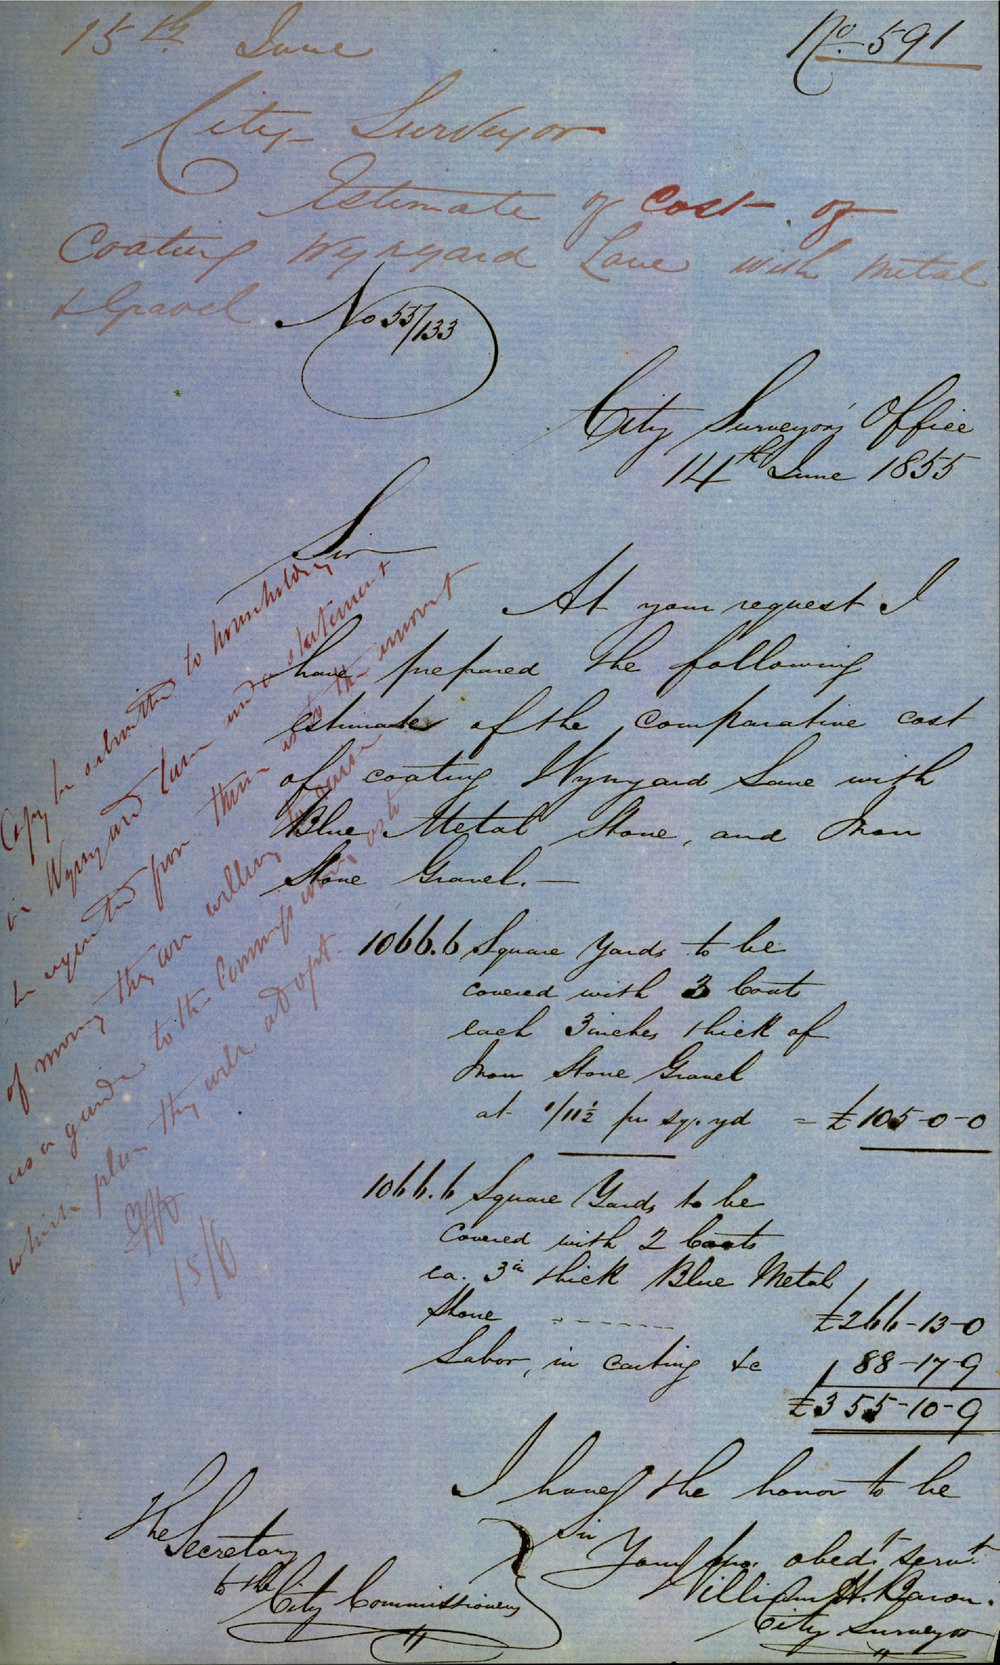 15th June
No. 591
City Surveyor
Estimate of Cost of
Coating Wynyard Lane with Metal
& Gravel
No 55/133
City Surveyors Office
14th June 1855
Sir
At your request I
have prepared the following
estimates of the comparative cost
of coating Wynyard Lane with
Blue Metal Stone, and Iron
Stone Gravel. —
1066.6 Square Yards to be
covered with 3 Coats
each 3 inches thick of
Iron Stone Gravel
at 1/11½ per sq. yd = £105-0-0
1066.6 Square Yards to be
Covered with 2 Coats
ea. 3in thick Blue Metal
Stone - - - - - - £266-13-0
Labor, in carting &c 88-17-9
£355-10-9
I have the honor to be
Sir
Your obedt servt
William H. Baron.
City Surveyor
The Secretary
to the
City Commissioners
Copy be submitted to householders
in Wynyard Lane and a statement
be requested from them as to the amount
of money they are willing to
as a guide to the Commissioners as to
which plan they will adopt
15/6